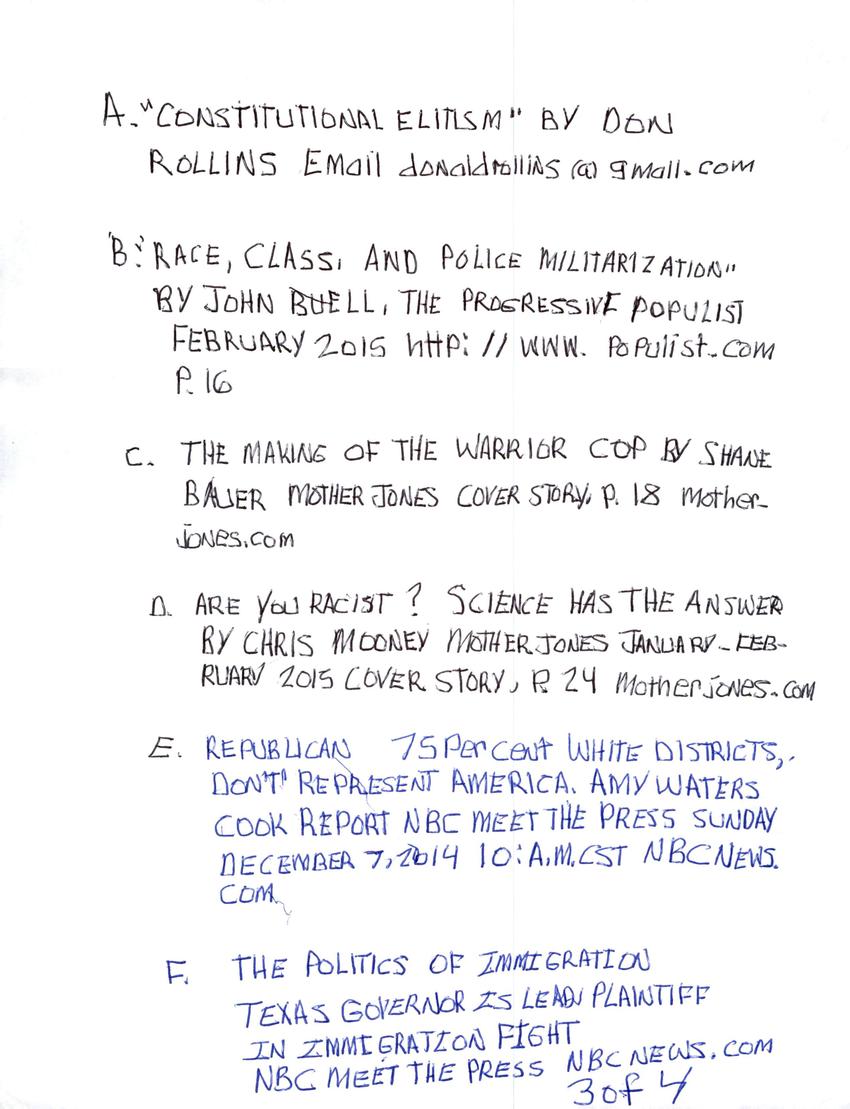 A. "CONSTITUTIONAL ELITISM" BY DON
ROLLINS Email donaldrollins @ gmail.com
B. "RACE, CLASS, AND POLICE MILITARIZATION"
BY JOHN BUELL, THE PROGRESSIVE POPULIST
FEBRUARY 2015 http: // WWW. Populist.com
P. 16
C. THE MAKING OF THE WARRIOR COP BY SHANE
BAUER MOTHER JONES COVER STORY, P. 18 Mother-
Jones.com
D. ARE YOU RACIST? SCIENCE HAS THE ANSWER
BY CHRIS MOONEY MOTHER JONES JANUARY-FEB-
RUARY 2015 COVER STORY, P. 24 Motherjones.com
E. REPUBLICAN 75 PerCent WHITE DISTRICTS,.
DON'T' REPRESENT AMERICA. AMY WATERS
COOK REPORT NBC MEET THE PRESS SUNDAY
DECEMBER 7, 2014 10: A.M. CST NBCNEWS.
COM
F. THE POLITICS OF IMMIGRATION
TEXAS GOVERNOR IS LEAD PLAINTIFF
IN IMMIGRATION FIGHT
NBC MEET THE PRESS NBCNEWS.COM
3 of 4